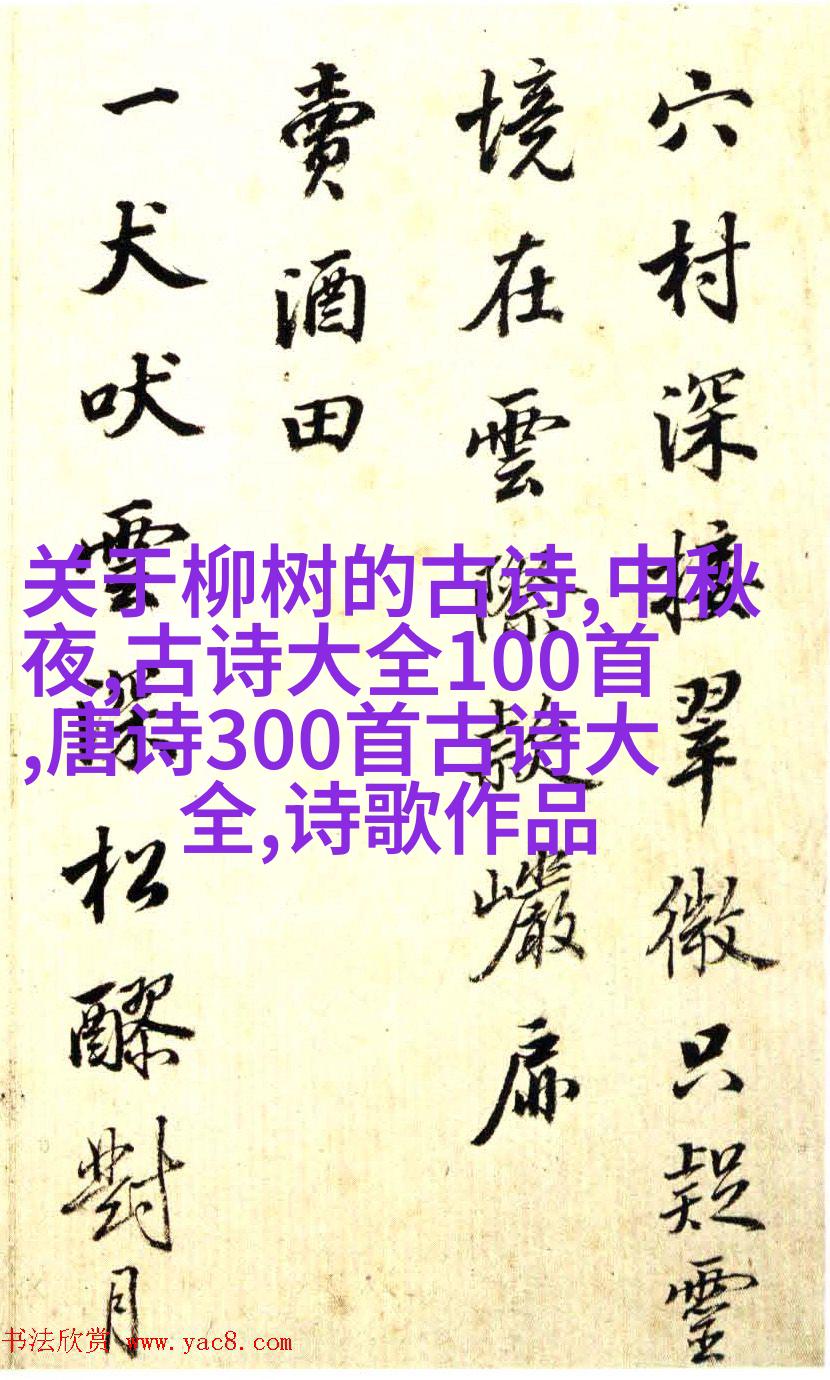 穴村深接翠微只疑靈
境在雲際敲巖扉
賣酒田
一犬吠雲深松醪對月
关于柳树的古诗,中秋
夜,古诗大全100首
,唐诗300首古诗大
全,诗歌作品
书法欣赏 www.yac8.com